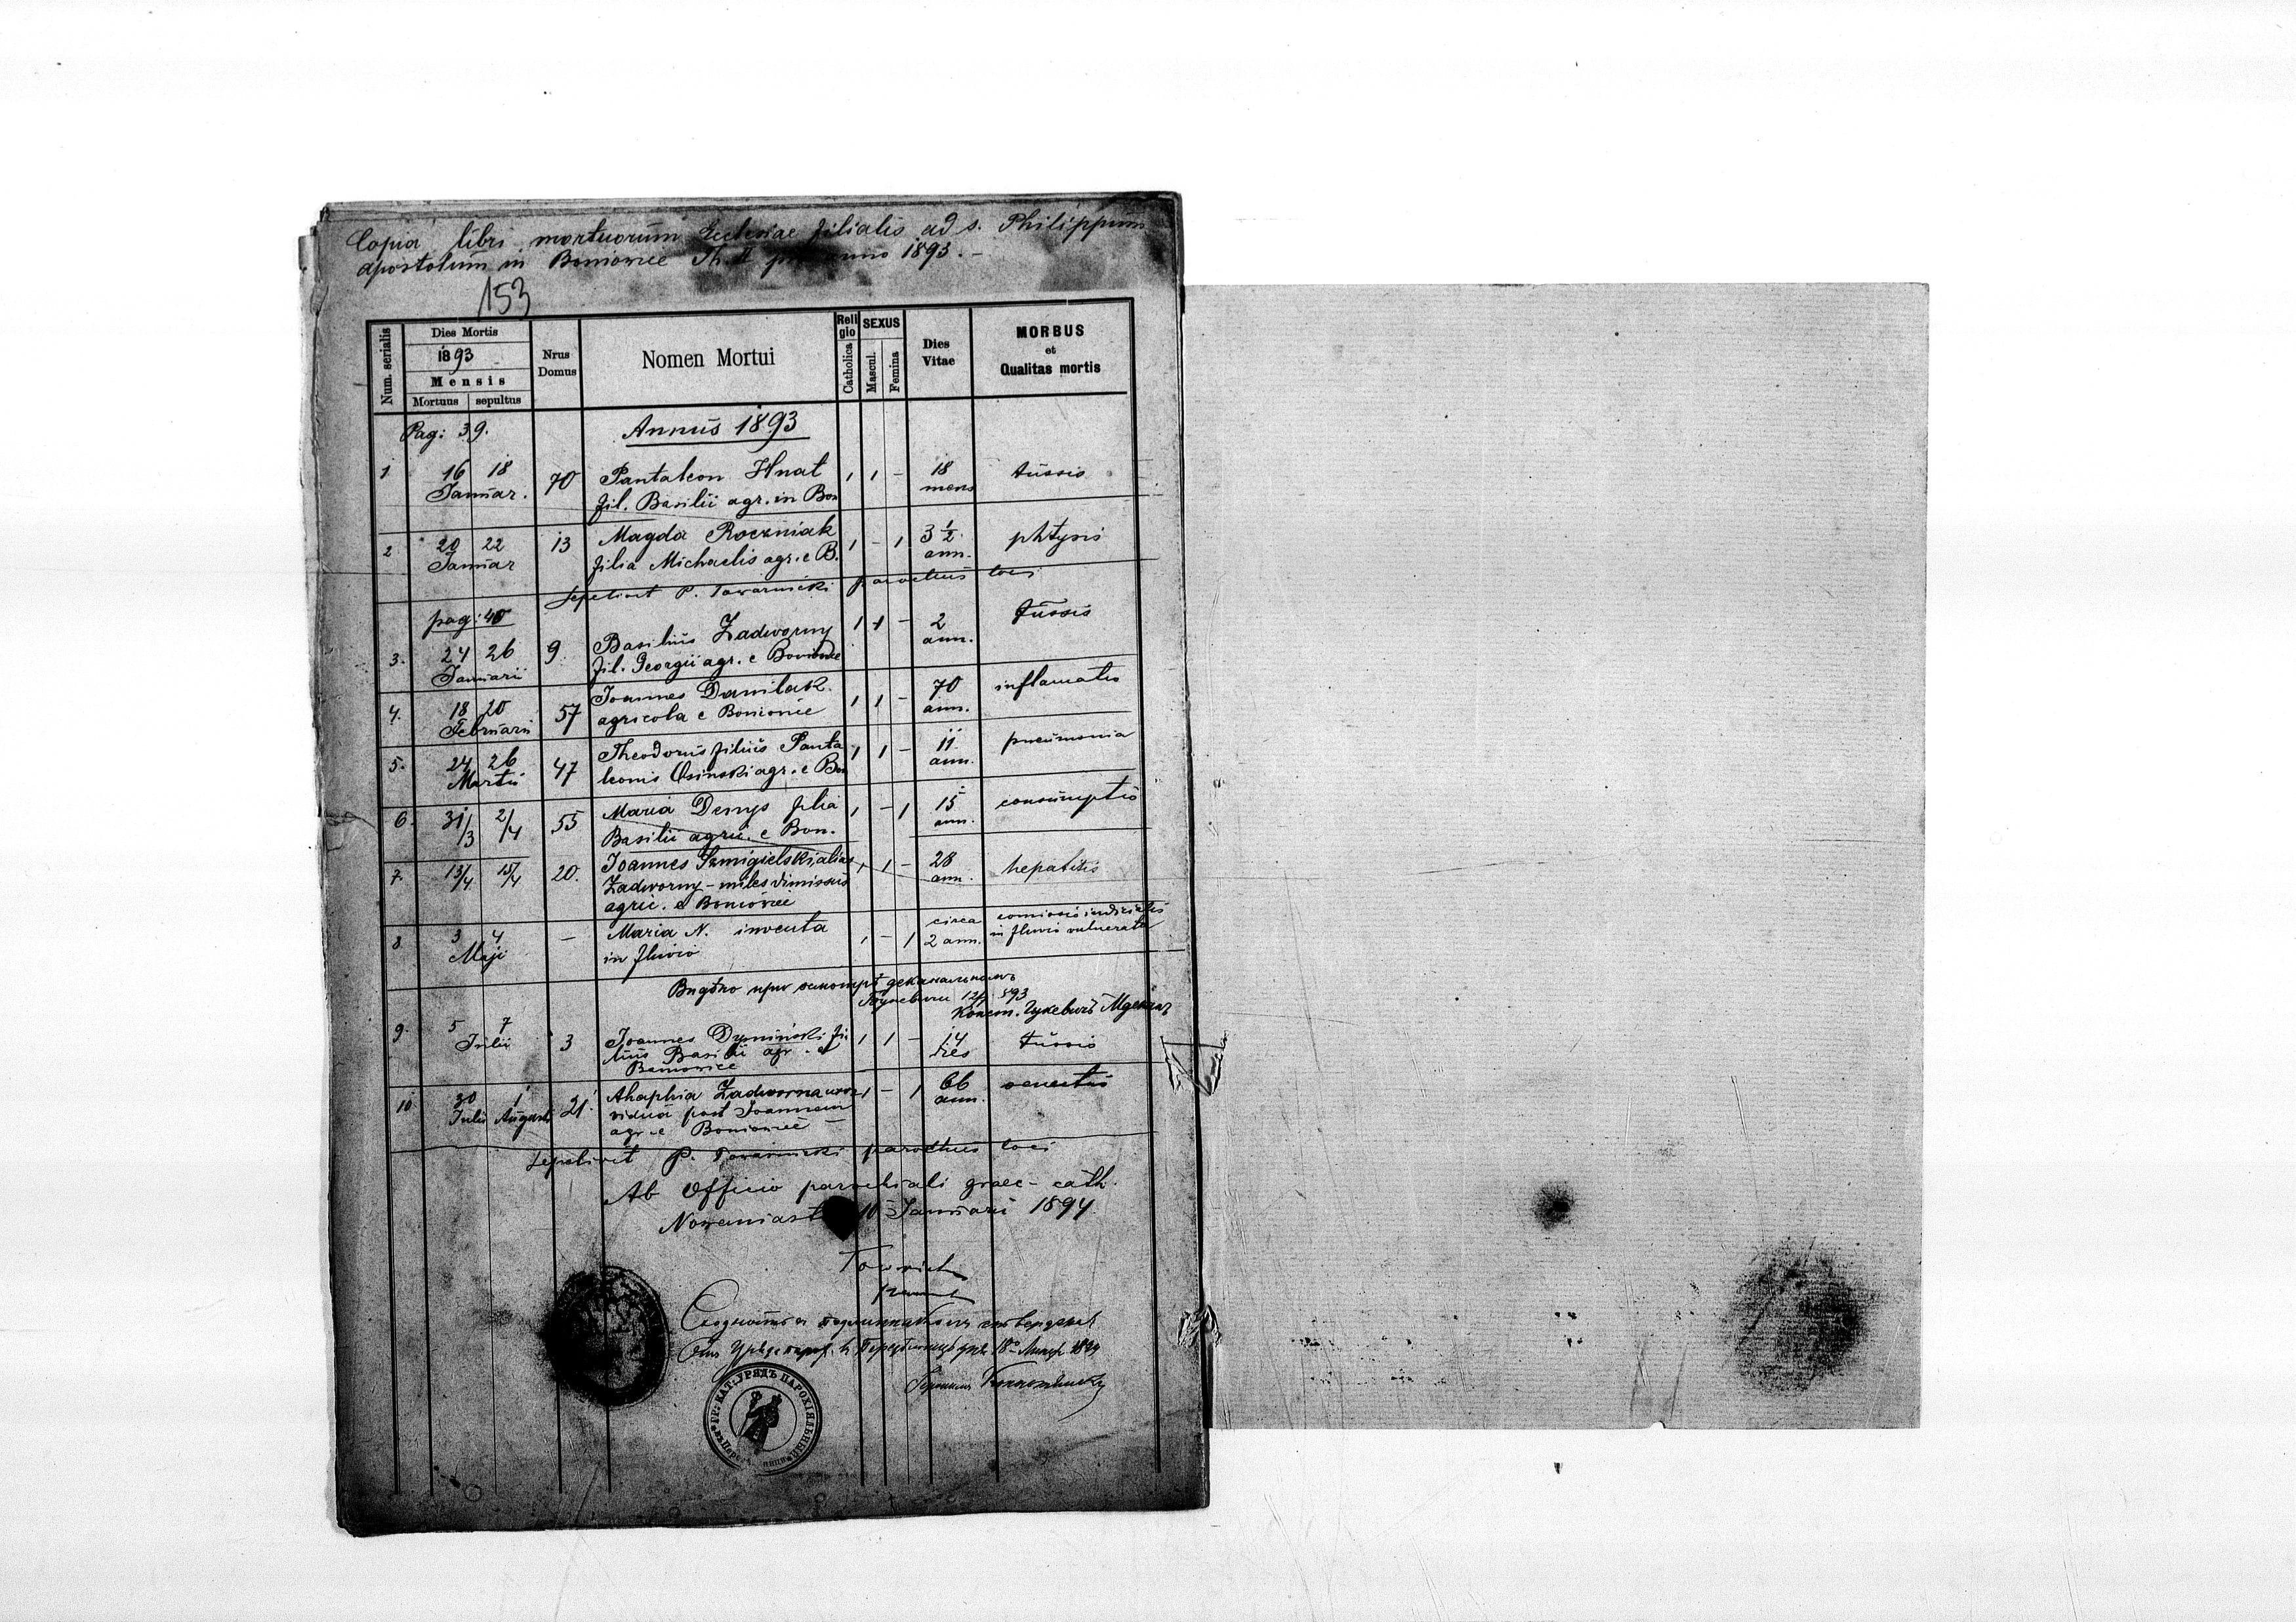 Copia libri mortuorum Ecclesiae filialis ad s. Philippum
apostolum in Boniowice Th. II pro anno 1893. -
153
Num. serialis
Dies Mortis
1893
Mensis
Mortuus sepultus
Nrus Domus
Nomen Mortui
Religio
Catholica
SEXUS
Mascul.
Femina
Dies Vitae
MORBUS
et
Qualitas mortis
Pag: 39. Annus 1893
1 16 18 70 Pantaleon Hnat 1 1 - 18 tussis
Januar. fil. Basilii agr. in Bon mens
2 20 22 13 Magda Roczniak 1 - 1 3 1/2 phtysis
Januar filia Michaelis agr. e B. ann.
Sepelivit P. Towarnicki parochus loci
pag: 40
3. 24 26 9 Basilius Zadworny 1 1 - 2 tussis
Januari fil. Georgii agr. e Boniowice ann.
4. 18 20 57 Joannes Danilak 1 1 - 70 inflamatio
Februarii agricola e Boniowice ann.
5. 24 26 47 Theodorus filius Panta 1 1 - 11 pneumonia
Martii leonis Osinski agr. e Bon ann.
6. 31/3 2/4 55 Maria Demys filia 1 - 1 15 consumptio
Basilii agric. e Bon. ann.
7. 13/4 15/4 20. Joannes Szmigielski alias 1 1 - 28 hepatitis
Zadworny - miles dimissus ann.
agric. e Boniowice
8 3 4 - Maria N. inventa 1 - 1 circa 2 ann. comissio iudicialis
Maji in fluvio in fluvio vulnerata
9. 5 7 3 Joannes Dyminski fi 1 1 - 14 tussis
Julii lius Basilii agr. e dies
Boniowice
10. 30 1 21. Ahaphia Zadworna uxor 1 - 1 66 senectus
Julii Augusti vidua post Joannem ann.
agr. e Boniowice
Sepelivit P. Towarnicki parochus loci
Ab Officio parochiali graec - cath.
Nowemiasto 10 Januarii 1894.
ГР: КАТ: УРЯДЪ ПАРОХІЯЛЬНЫЙ